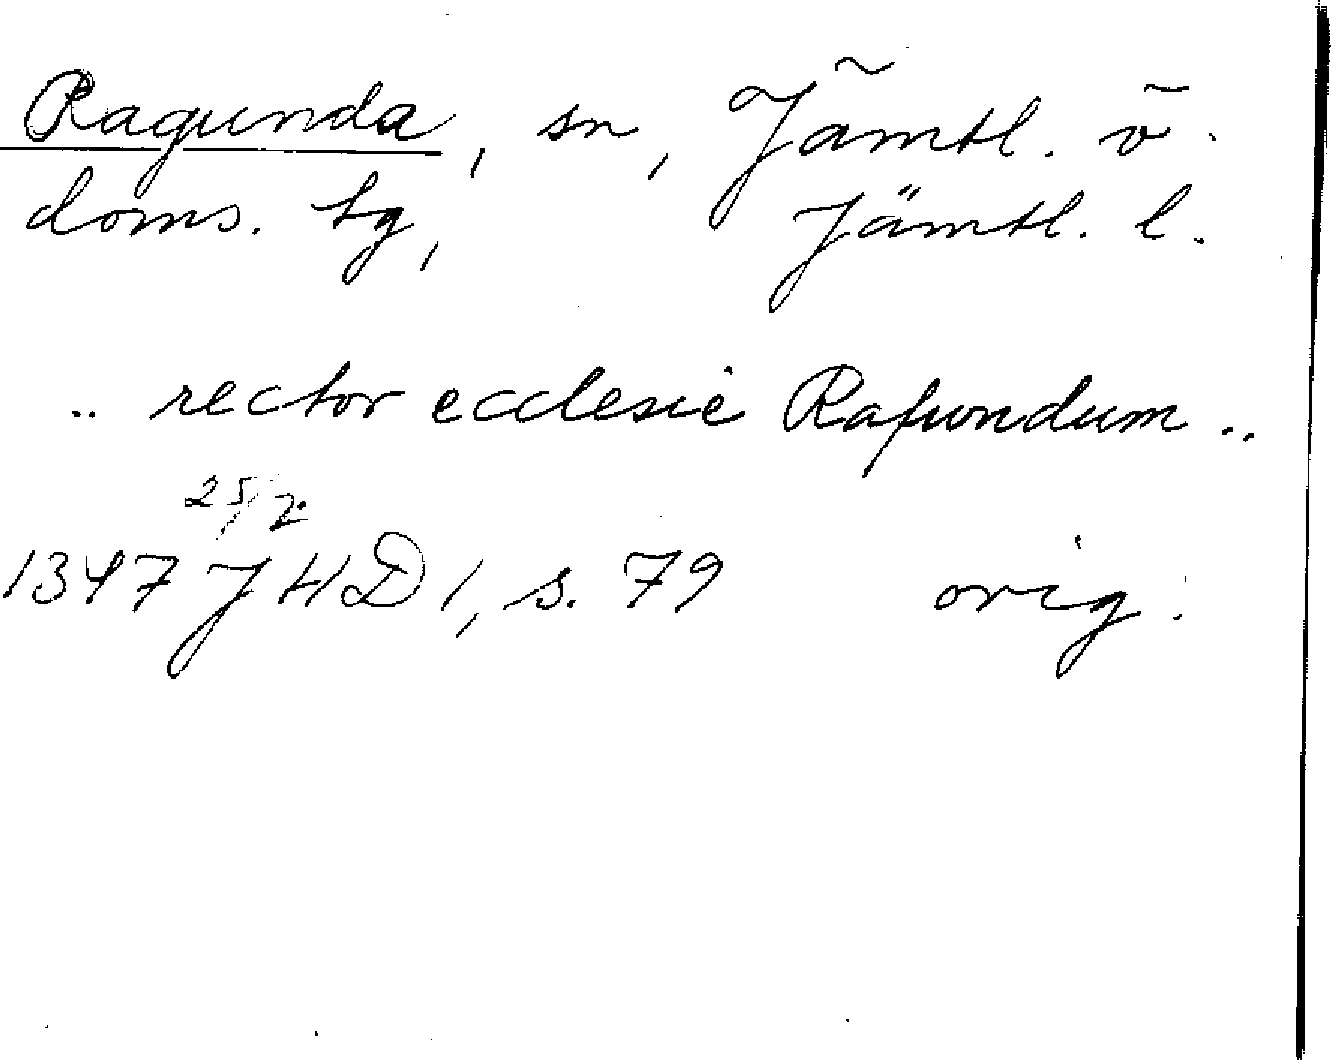 Ragunda, sn, Jämtl. ö.
doms. tg, Jämtl. l.
.. rector ecclesie Rafwndum ..
25/2
1347 JHD 1, s. 79 orig.